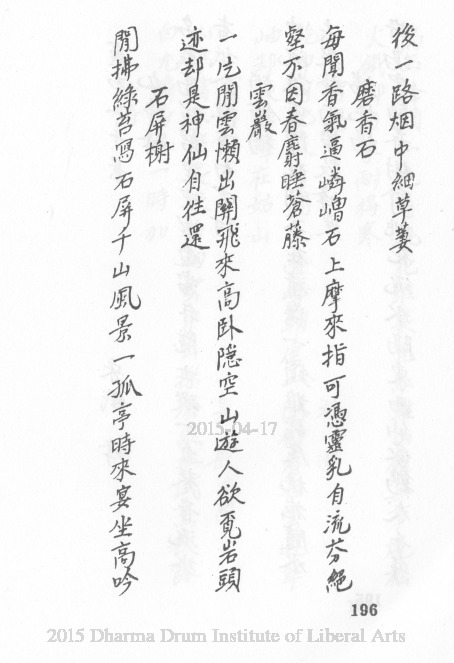 後一路烟中細草萋
磨香石
每聞香氣逼嶙嶒石上摩來指可憑靈乳自流芬絕
壑不因春麝睡蒼藤
雲巖
一片閒雲懶出關飛來高臥隱空山遊人欲覓岩頭
迹却是神仙自往還
石屏榭
閒拂綠苔寫石屏千山風景一孤亭時來宴坐高吟
196
2015-04-17
2015 Dharma Drum Institute of Liberal Arts